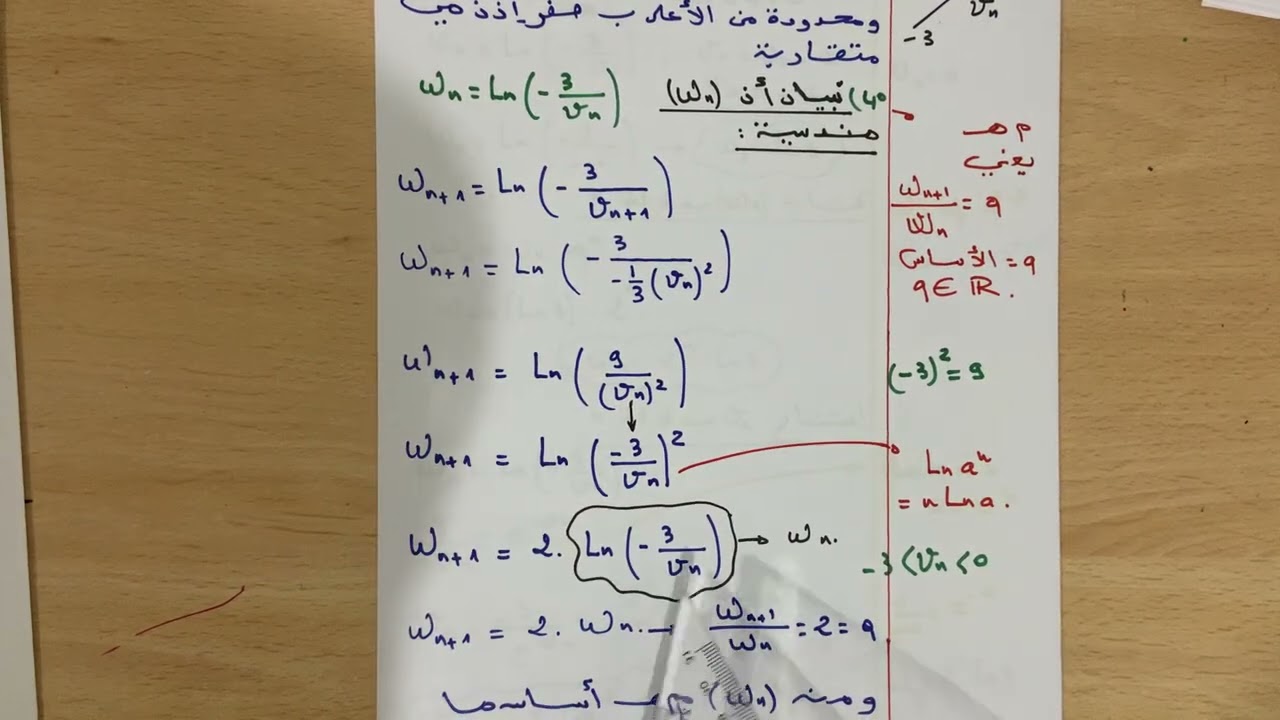 ومحدودة من الأعلى ب صفر إذن هي
متقاربة
4°) تبيان أن (wn) wn = Ln(-3/vn)
هندسية :
wn+1 = Ln(-3/vn+1)
wn+1 = Ln(-3/(-1/3 (vn)²))
wn+1 = Ln(9/(vn)²)
wn+1 = Ln(-3/vn)²
wn+1 = 2. Ln(-3/vn) → wn.
wn+1 = 2. wn. → wn+1/wn = 2 = q
ومنه (wn) م هـ أساسها
vn
-3
م هـ
يعني
wn+1/wn = q
q = الأساس
q ∈ ℝ.
(-3)² = 9
Ln aⁿ
= n Ln a.
-3 < vn < 0